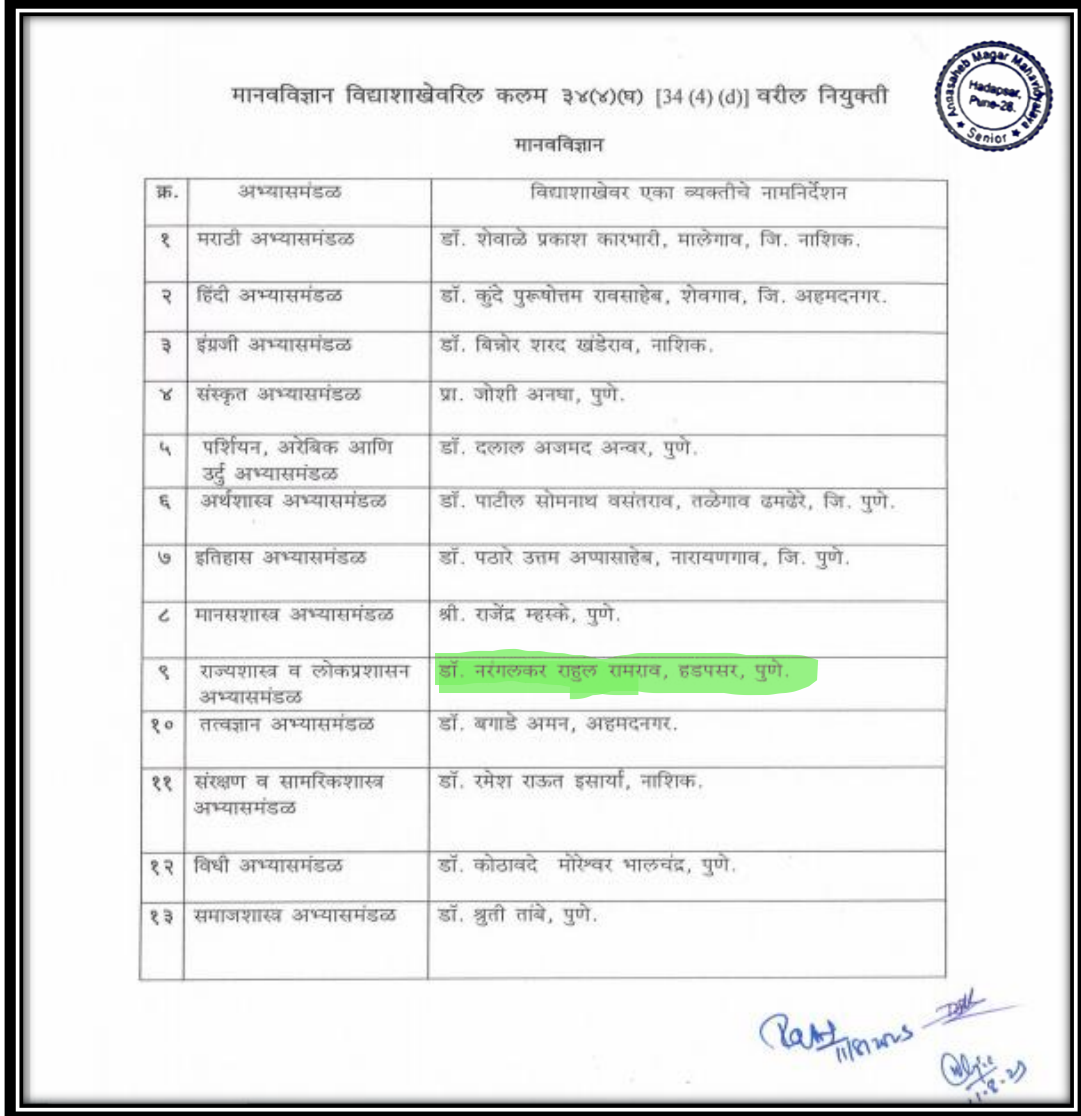 मानवविज्ञान विद्याशाखेवरिल कलम ३४(४)(घ) [34 (4) (d)] वरील नियुक्ती
Annasaheb Magar Mahavidyalaya
Hadapsar,
Pune-28.
Senior
मानवविज्ञान
क्र. अभ्यासमंडळ विद्याशाखेवर एका व्यक्तीचे नामनिर्देशन
१ मराठी अभ्यासमंडळ डॉ. शेवाळे प्रकाश कारभारी, मालेगाव, जि. नाशिक.
२ हिंदी अभ्यासमंडळ डॉ. कुंदे पुरूषोत्तम रावसाहेब, शेवगाव, जि. अहमदनगर.
३ इंग्रजी अभ्यासमंडळ डॉ. बिन्नोर शरद खंडेराव, नाशिक.
४ संस्कृत अभ्यासमंडळ प्रा. जोशी अनघा, पुणे.
५ पर्शियन, अरेबिक आणि डॉ. दलाल अजमद अन्वर, पुणे.
उर्दु अभ्यासमंडळ
६ अर्थशास्त्र अभ्यासमंडळ डॉ. पाटील सोमनाथ वसंतराव, तळेगाव ढमढेरे, जि. पुणे.
७ इतिहास अभ्यासमंडळ डॉ. पठारे उत्तम अप्पासाहेब, नारायणगाव, जि. पुणे.
८ मानसशास्त्र अभ्यासमंडळ श्री. राजेंद्र म्हस्के, पुणे.
९ राज्यशास्त्र व लोकप्रशासन डॉ. नरंगलकर राहुल रामराव, हडपसर, पुणे.
अभ्यासमंडळ
१० तत्वज्ञान अभ्यासमंडळ डॉ. बगाडे अमन, अहमदनगर.
११ संरक्षण व सामरिकशास्त्र डॉ. रमेश राऊत इसार्या, नाशिक.
अभ्यासमंडळ
१२ विधी अभ्यासमंडळ डॉ. कोठावदे मोरेश्वर भालचंद्र, पुणे.
१३ समाजशास्त्र अभ्यासमंडळ डॉ. श्रुती तांबे, पुणे.